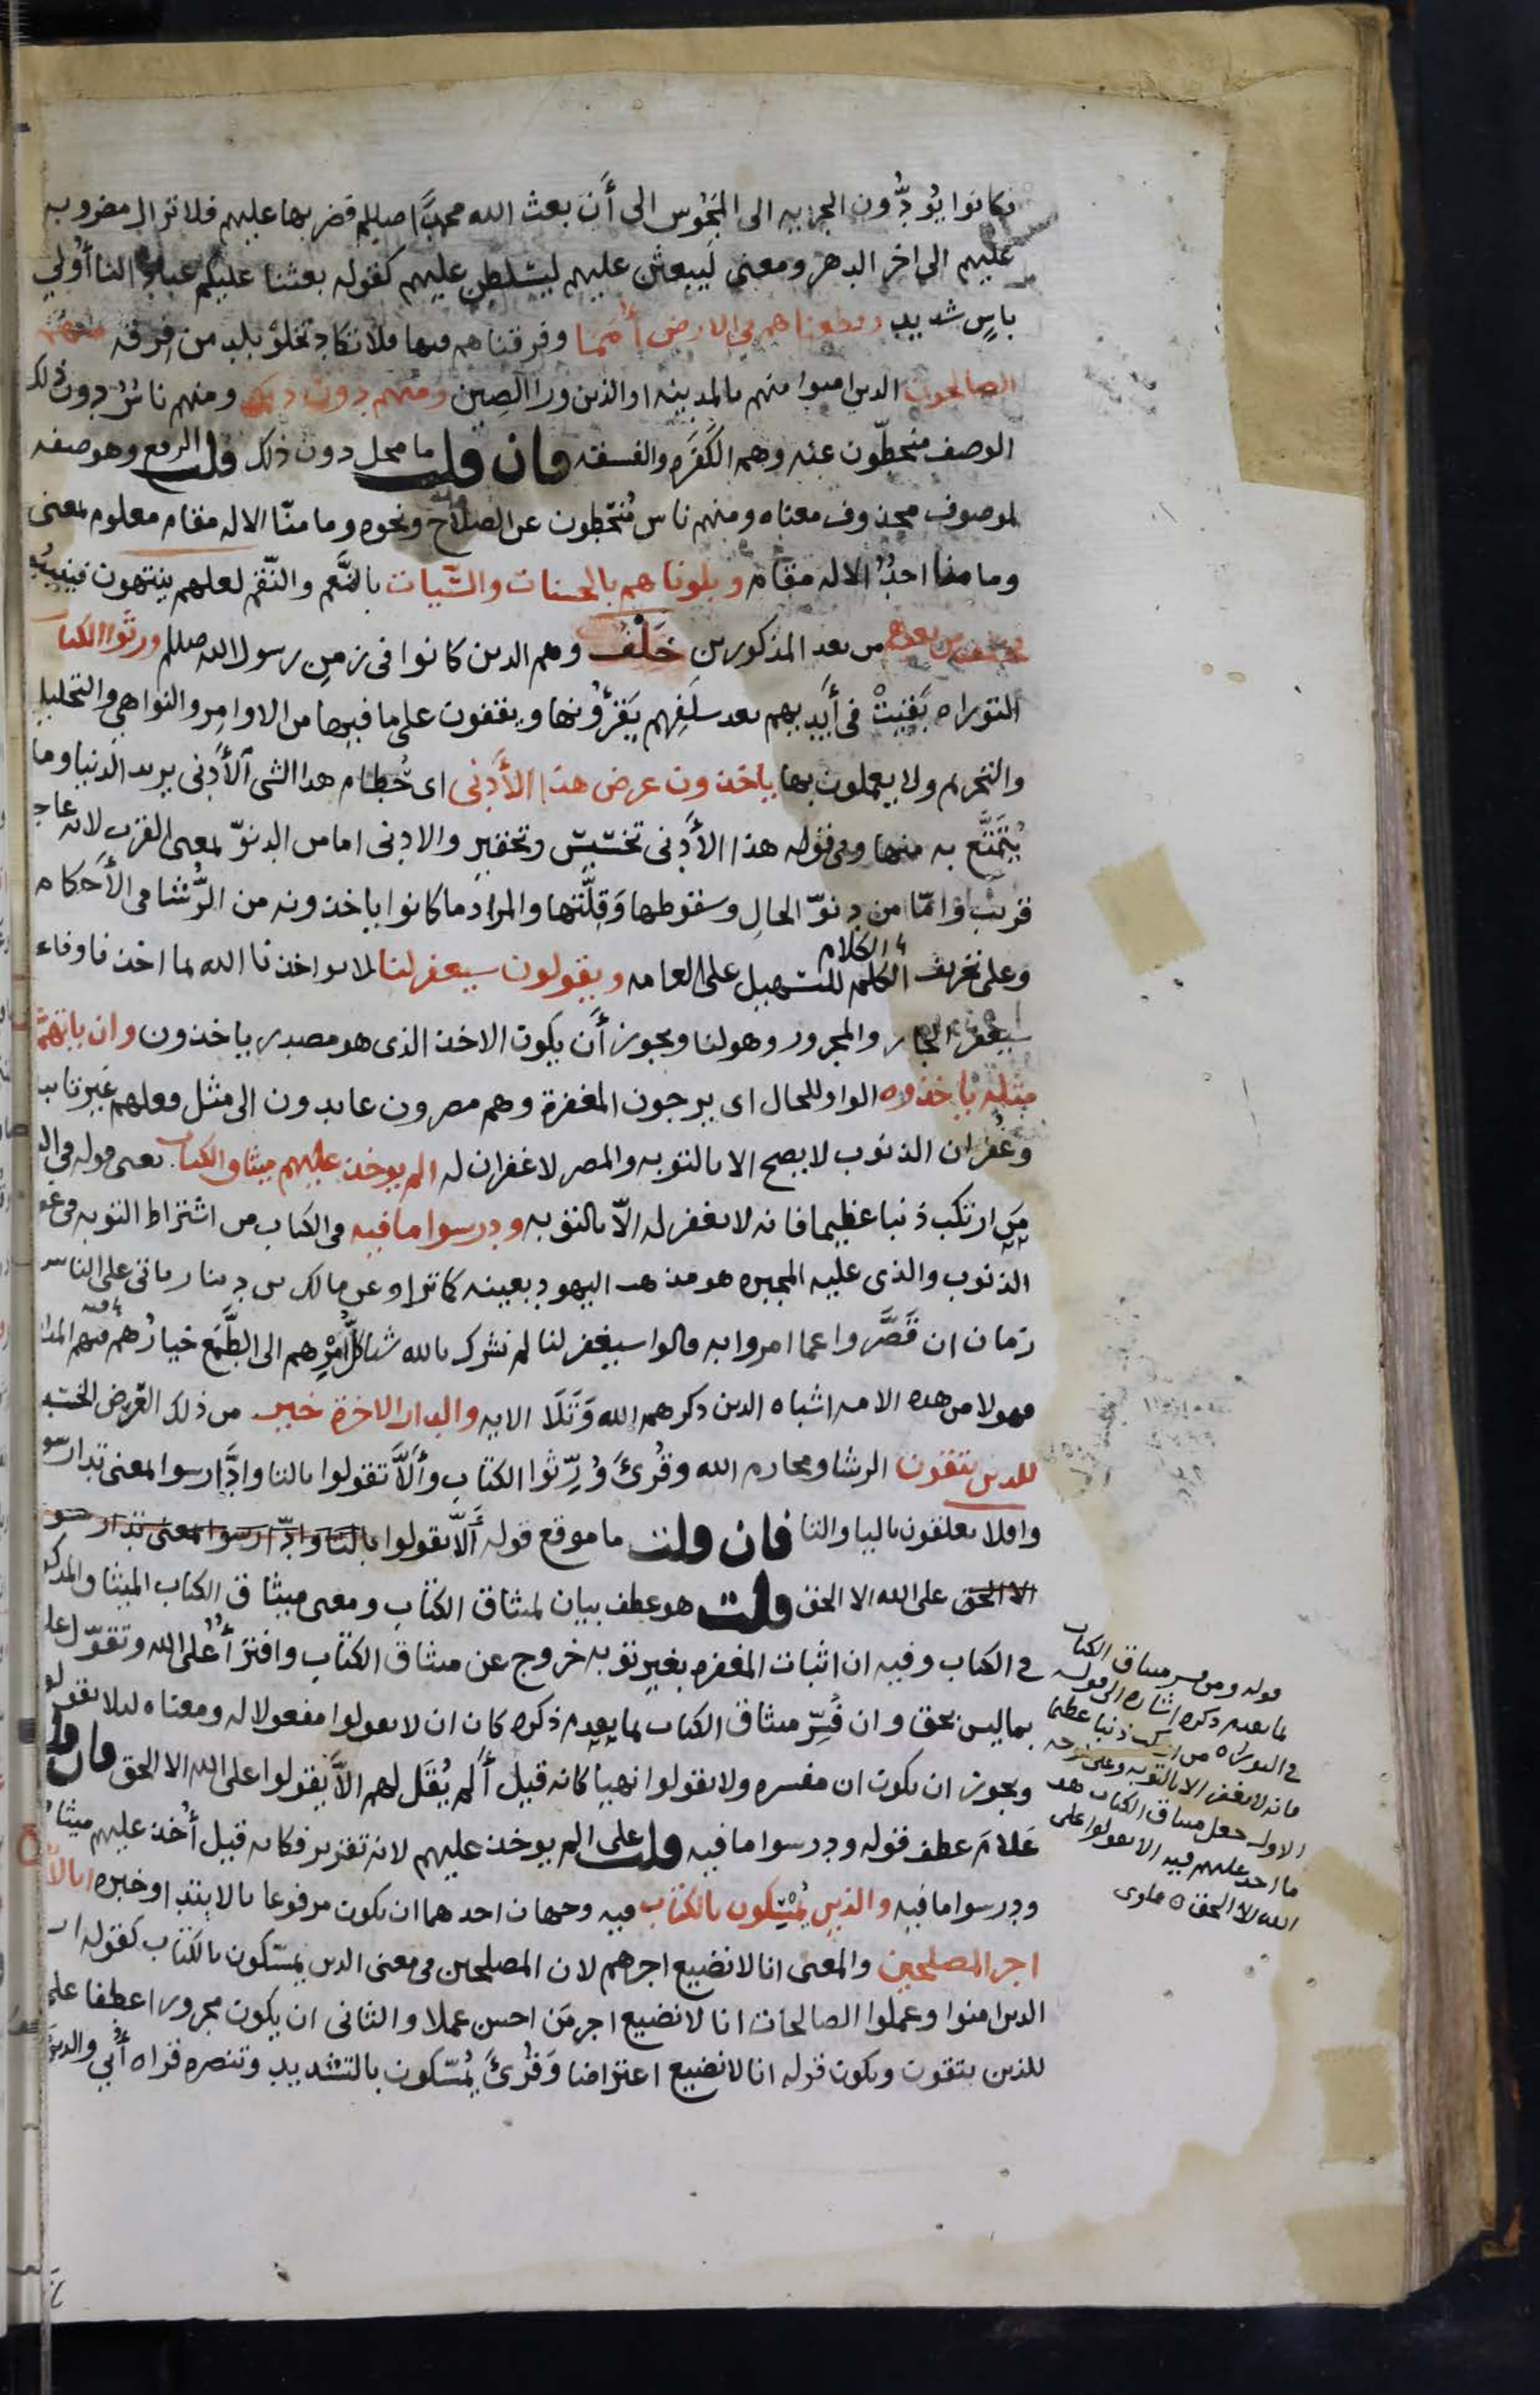 فكانوا يُؤدُّون الجزيه الى المَجُوس الى أَن بعث الله محمَّدا صللم فضربها عليهم فلا تزال مضروبه
عليهم الى اخر الدهر ومعنى لَيبعثن عليهم ليسَلطن عليهم كقوله بعثنا عليكم عبادا لنا أُولي
باسٍ شديد وقطعناهم في الارض أُمَما وفرقناهم فيها فلا تكاد تخلو بلد من فرقه منهم
الصالحون الدين امنوا منهم بالمدينه او الذين ورا الصِين ومنهم دون ذلك ومنهم ناسٌ دون ذلك
الوصف منحطّون عنه وهم الكَفَره والفسقه فان قلت ما محل دون ذلك قلت الرفع وهو صفه
لموصوف محذوف معناه ومنهم ناس مُنحّطون عن الصلاح ونحوه وما منّا الا له مقام معلوم لمعنى
وما منا احدٌ الا له مقام وبلوناهم بالحسنات والسّيات بالنَّعم والنّقم لعلهم ينتهون فينيبُو
فخلف من بعدهم من بعد المذكورين خَلْفٌ وهم الدين كانوا في زمنِ رسول الله صللم ورثوا الكتا
التوراه بَقيتْ في أَيديهم بعد سلَفِهم يَقرؤُنها ويقفون على ما فيها من الاوامِر والنواهي والتحليل
والتحريم ولا يعملون بها ياخذون عرض هذا الأَدنى اى حُطام هدا الشى الأَدنى يريد الدنيا وما
يُتَمتَّع به منها وفي قوله هذا الأَدنى تخسيس وتحقير والادنى اما من الدنوّ لمعنى القرب لانه عاجـ
قريب وامّا من دنوّ الحالِ وسقوطها وَقِلَّتها والمراد ما كانوا ياخذونه من الرُّشا في الأَحكام
وعلى تحريف الكلم للتسهيل على العامه ويقولون سيغفر لنا لا يواخذنا الله بما اخذنا وفاء
الكلام
سيغفر الجار والمجرور وهو لنا ويجوز أَن يكون الاخذ الذى هو مصدر ياخذون وان ياتهم
مثله ياخذوه الواو للحال اى يرجون المغفرة وهم مصرون عايدون الى مثل فعلهم غَير تايب
وغُفران الذنوب لا يصح الا بالتوبه والمصر لا غفران له الم يوخذ عليهم ميثاق الكتاب يعنى قوله في الـ
مَن ارتكب ذنبا عظيما فانه لا يغفر له الاّ بالتوبه ودرسوا ما فيه في الكتاب من اشتراط التوبه في غفـ
الذنوب والذى عليه المجبره هو مذهب اليهود بعينه كما ترا وعن مالك بن دينار ياتى على الناس
زمان ان قَصَّروا عما امروا به قالوا سيغفر لنا لم نشرك بالله شيا كلُّ امْرِهم الى الطَّمع خيارُهم فيهم المدا
فهولا من هده الامه اشباه الدين دكرهم الله وَتَلَا الايه والدار الاخرة خير من ذلك العَرض الخسيـ
للدين يتقون الرشا ومحارم الله وقُرئَ وُرِّثوا الكتاب وأَلاَّ تقولوا بالتا وادَّارسوا لمعنى تدارسو
وافلا يعلقون باليا والتا فان قلت ما موقع قوله أَلاّ يقولوا بالتا وادّارسوا لمعنى تدارسو
الا الحق على الله الا الحق قلت هو عطف بيان لميثاق الكتاب ومعنى ميثاق الكتاب الميثاق المذكو
في الكتاب وفيه ان اثبات المغفره بغير توبه خروج عن ميثاق الكتاب وافتراءٌ على الله وتقوّل عليـ
بما ليس بحق وان فُسِّر ميثاق الكتاب بما تقدم ذكره كان ان لا يقولوا مفعولا له ومعناه ليلا يقولو
ويجوز ان يكون ان مفسره ولا يقولوا نهيا كانه قيل أَلم يُقَل لهم الاَّ يقولوا على الله الا الحق فان قل
عَلامَ عطف قوله ودرسوا ما فيه قلت على الم يوخذ عليهم لانه تقرير فكانه قيل أُخذ عليهم ميثا
ودرسوا ما فيه والذين يُمسّكون بالكتاب فيه وجهان احدهما ان يكون مرفوعا بالابتدا وخبره انا لا
اجر المصلحين والمعنى انا لا نضيع اجرهم لان المصلحين في معنى الدين يمسّكون بالكتاب كقوله ان
الدين امنوا وعملوا الصالحات انا لا نضيع اجر مَن احسن عملا والثانى ان يكون مجرورا عطفا على
للذين يتقون ويكون قوله انا لا نضيع اعتراضا وَقُرئَ يُمسّكون بالتشديد وتنصره قراه أُبي والدين
قوله ومن فسر ميثاق الكتاب
بما تقدم دكره اشاره الى قوله
في التوراه من ارتكب ذنبا عظيما
فانه لا يغفر الا بالتوبه وعلى
الاول جعل ميثاق الكتاب هو
ما اخد عليهم فيه الا يقولوا على
الله الا الحق